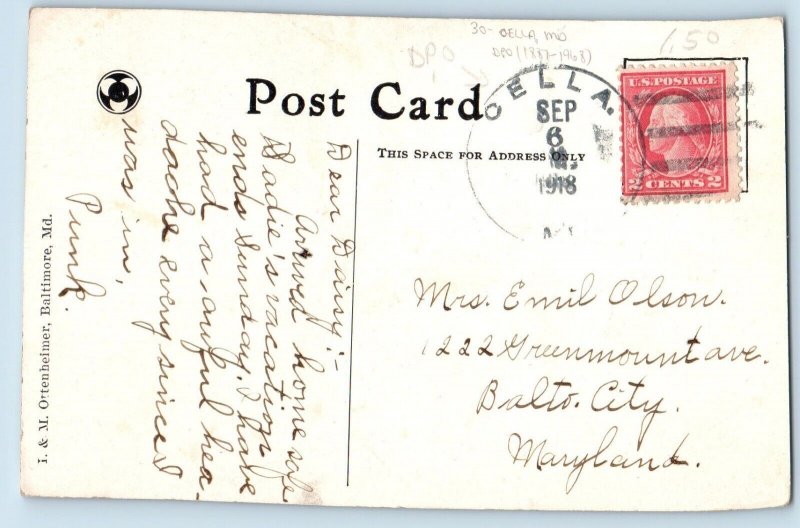 30- OELLA, MD
DPO (1887-1968)
DPO
1.50
Post Card
THIS SPACE FOR ADDRESS ONLY
OELLA.
SEP
6
1918
U.S. POSTAGE
2 CENTS 2
Dear Daisy:-
Arrived home safe
Sadie's vacation
ends Sunday. I have
had a awful hea-
dache every since I
was in,
Punk.
Mrs. Emil Olson.
1222 Greenmount ave.
Balto. City.
Maryland.
I. & M. Ottenheimer, Baltimore, Md.